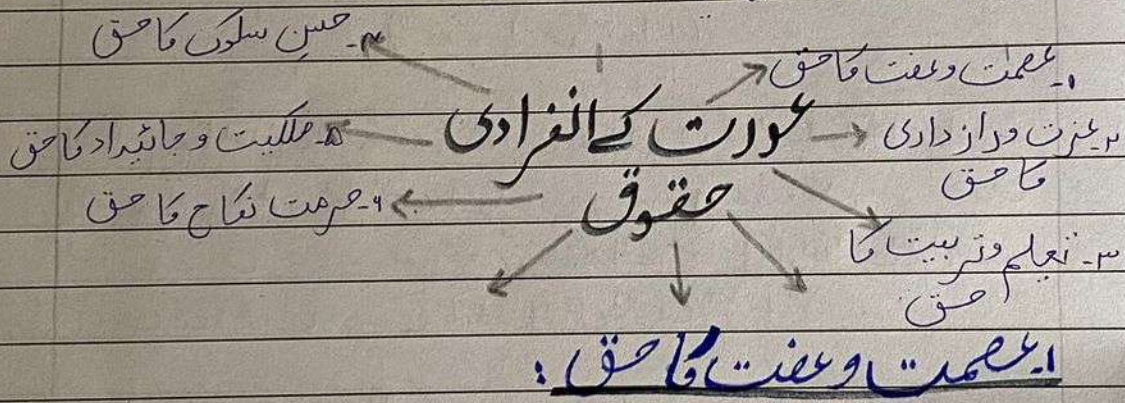 عورت کے انفرادی
حقوق
۱۔ عصمت و عفت کا حق
۲۔ عزت و رازداری
کا حق
۳۔ تعلیم و تربیت کا
حق
۴۔ حسنِ سلوک کا حق
۵۔ ملکیت و جائیداد کا حق
۶۔ حرمت نکاح کا حق
۱۔ عصمت و عفت کا حق :